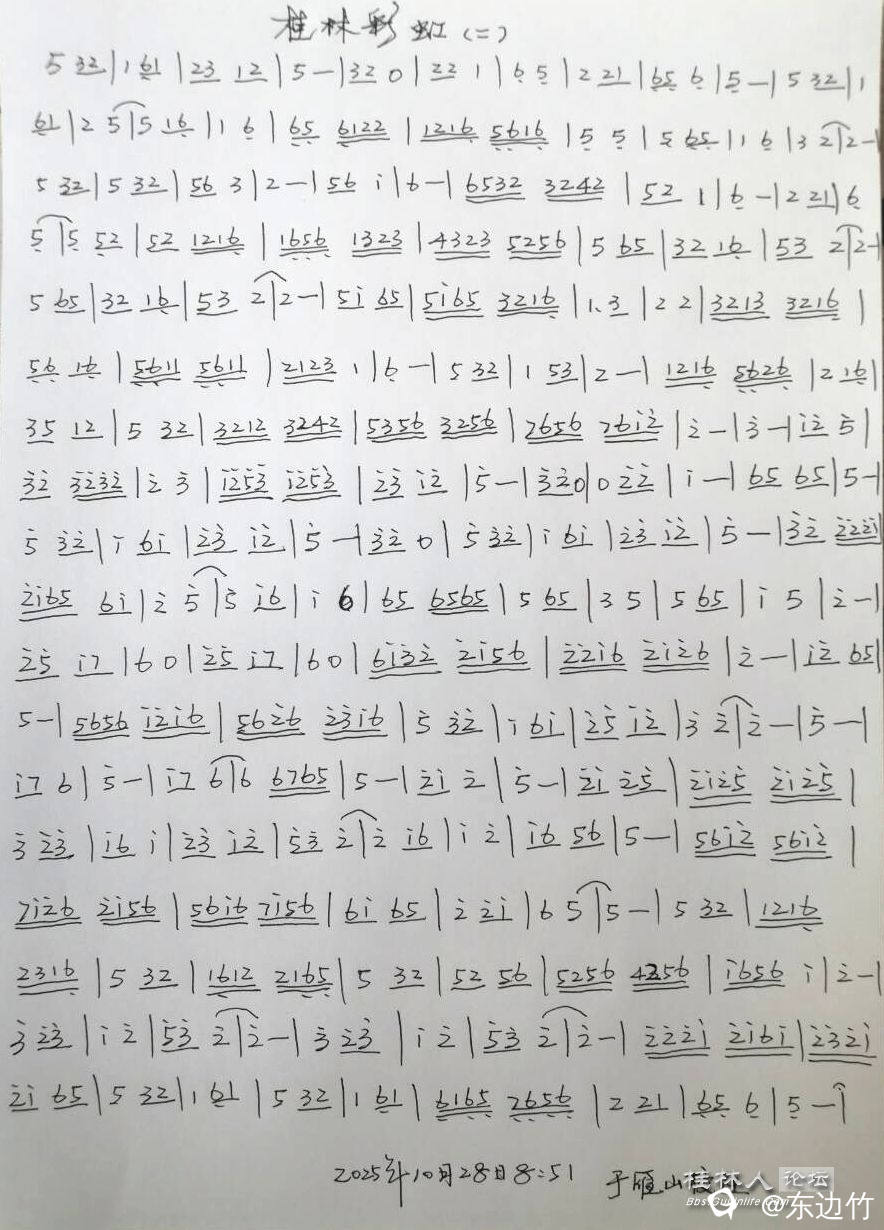 桂林彩虹(二)
5 32|1 61|23 12|5—|32 0|22 1|6 5|2 21|65 6|5—|5 32|1
61|2 5|5 16|1 6|65 6122|1216 5616|5 5|5 65|1 6|3 2|2—|
5 32|5 32|56 3|2—|56 i|6—|6532 3242|52 1|6—|2 21|6
5|5 52|52 1216|1656 1323|4323 5256|5 65|32 16|53 2|2—|
5 65|32 16|53 2|2—|5i 65|5i65 3216|1.3|2 2|3213 3216|
56 16|5611 5611|2123 1|6—|5 32|1 53|2—|1216 5626|2 16|
35 12|5 32|3212 3242|5356 3256|7656 76i2|2—|3—|i2 5|
32 3232|2 3|i253 i253|23 i2|5—|320|0 22|i—|65 65|5—|
5 32|i 6i|23 i2|5—|32 0|5 32|i 6i|23 i2|5—|32 222i|
2i65 6i|2 5|5 i6|i 6|65 6565|5 65|3 5|5 65|i 5|2—|
25 i7|60|25 i7|60|6i32 2i56|22i6 2i26|2—|i2 65|
5—|5656 i2i6|5626 23i6|5 32|i 6i|25 i2|3 2|2—|5—|
i7 6|5—|i7 6|6 6765|5—|2i 2|5—|2i 25|2i25 2i25|
3 23|i6 i|23 i2|53 2|2 i6|i 2|i6 56|5—|56i2 56i2|
7i26 2i56|56i6 7i56|6i 65|2 2i|6 5|5—|5 32|1216
2316|5 32|1612 2165|5 32|52 56|5256 4256|i656 i|2—|
3 23|i 2|53 2|2—|3 23|i 2|53 2|2—|222i 2i6i|232i
2i 65|5 32|1 61|5 32|1 61|6165 2656|2 21|65 6|5—|
2025年10月28日8:51 于雁山
桂林人论坛
@东边竹